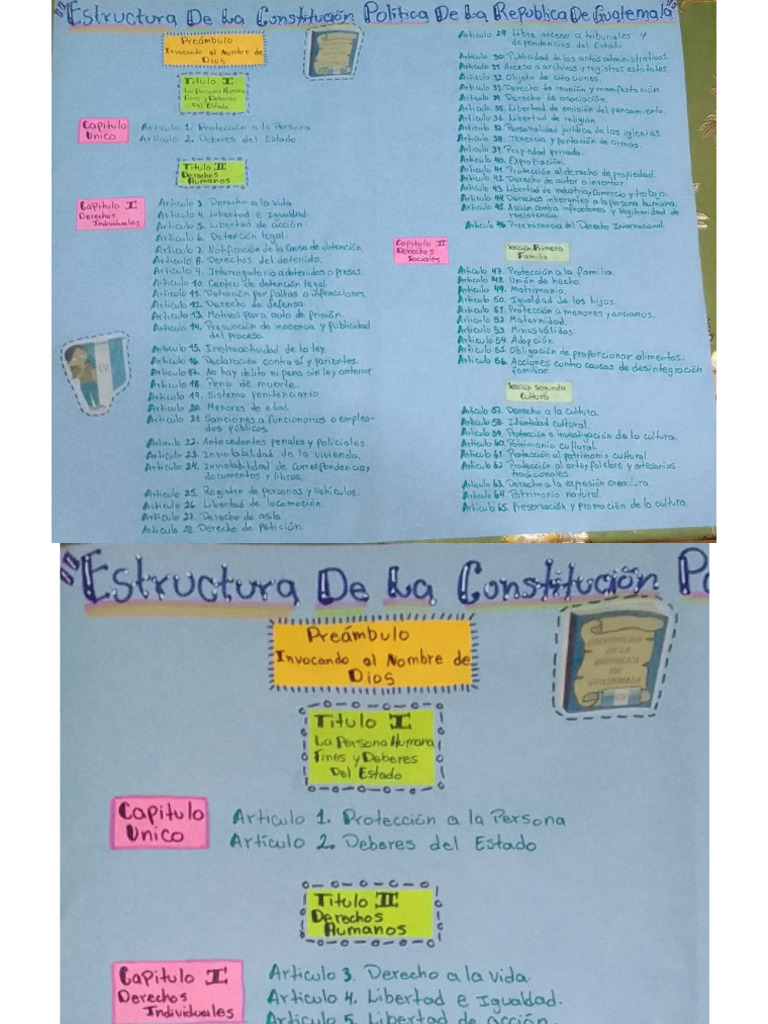 "Estructura De La Constitución Política De La Republica De Guatemala"
Preámbulo
Invocando al Nombre de
Dios
Titulo I
La Persona Humana
Fines y Deberes
Del Estado
Capitulo
Unico
Articulo 1. Protección a la Persona
Articulo 2. Deberes del Estado
Titulo II
Derechos
Humanos
Capitulo I
Derechos
Individuales
Articulo 3. Derecho a la vida.
Articulo 4. Libertad e Igualdad.
Articulo 5. Libertad de acción.
Articulo 6. Detención legal.
Articulo 7. Notificación de la causa de detención
Articulo 8. Derechos del detenido.
Articulo 9. Interrogatorio a detenidos o presos.
Articulo 10. Centro de detención legal
Articulo 11. Detención por faltas o infracciones
Articulo 12. Derecho de defensa.
Articulo 13. Motivos para auto de prisión.
Articulo 14. Presunción de inocencia y publicidad
del proceso.
Articulo 15. Irretroactividad de la ley
Articulo 16. Declaración contra sí y parientes.
Articulo 17. No hay delito ni pena sin ley anterior
Articulo 18. Pena de muerte.
Articulo 19. Sistema penitenciario.
Articulo 20. Menores de edad.
Articulo 21. Sanciones a funcionarios o emplea-
dos públicos.
Articulo 22. Antecedentes penales y policiales.
Articulo 23. Inviolabilidad de la vivienda.
Articulo 24. Inviolabilidad de correspondencia,
documentos y libros.
Articulo 25. Registro de personas y vehículos.
Articulo 26 Libertad de locomoción.
Articulo 27. Derecho de asilo
Articulo 28. Derecho de petición.
Articulo 29. Libre acceso a tribunales y
dependencias del Estado.
Articulo 30. Publicidad de los actos administrativos.
Articulo 31. Acceso a archivos y registros estatales.
Articulo 32. Objeto de citaciones.
Articulo 33. Derecho de reunión y manifestación.
Articulo 34. Derecho de asociación.
Articulo 35. Libertad de emisión del pensamiento.
Articulo 36. Libertad de religión
Articulo 37. Personalidad jurídica de las iglesias.
Articulo 38. Tenencia y portación de armas.
Articulo 39. Propiedad privada.
Articulo 40. Expropiación.
Articulo 41. Protección al derecho de propiedad.
Articulo 42. Derecho de autor o inventor.
Articulo 43. Libertad de industria, comercio y trabajo.
Articulo 44. Derechos inherentes a la persona humana.
Articulo 45. Acción contra infractores y legitimidad de
resistencia.
Articulo 46 Preeminencia del Derecho Internacional.
Capitulo II
Derechos
Sociales
Sección Primera
Familia
Articulo 47. Protección a la familia.
Articulo 48. Unión de hecho.
Articulo 49. Matrimonio.
Articulo 50. Igualdad de los hijos.
Articulo 51. Protección a menores y ancianos.
Articulo 52 Maternidad.
Articulo 53. Minusválidos.
Articulo 54 Adopción.
Articulo 55. Obligación de proporcionar alimentos.
Articulo 56. Acciones contra causas de desintegración
familiar.
Sección Segunda
Cultura
Articulo 57. Derecho a la cultura.
Articulo 58. Identidad cultural.
Articulo 59. Protección e investigación de la cultura.
Articulo 60. Patrimonio cultural.
Articulo 61. Protección al patrimonio cultural
Articulo 62. Protección al arte, folklore y artesanias
tradicionales
Articulo 63. Derecho a la expresión creadora.
Articulo 64. Patrimonio natural.
Articulo 65. Preservación y promoción de la cultura.
"Estructura De La Constitución Po
Preámbulo
Invocando al Nombre de
Dios
CONSTITUCION
DE LA
REPUBLICA
DE
GUATEMALA
Titulo I
La Persona Humana
Fines y Deberes
Del Estado
Capitulo
Unico
Articulo 1. Protección a la Persona
Articulo 2. Deberes del Estado
Titulo II
Derechos
Humanos
Capitulo I
Derechos
Individuales
Articulo 3. Derecho a la vida.
Articulo 4. Libertad e Igualdad.
Articulo 5. Libertad de acción.